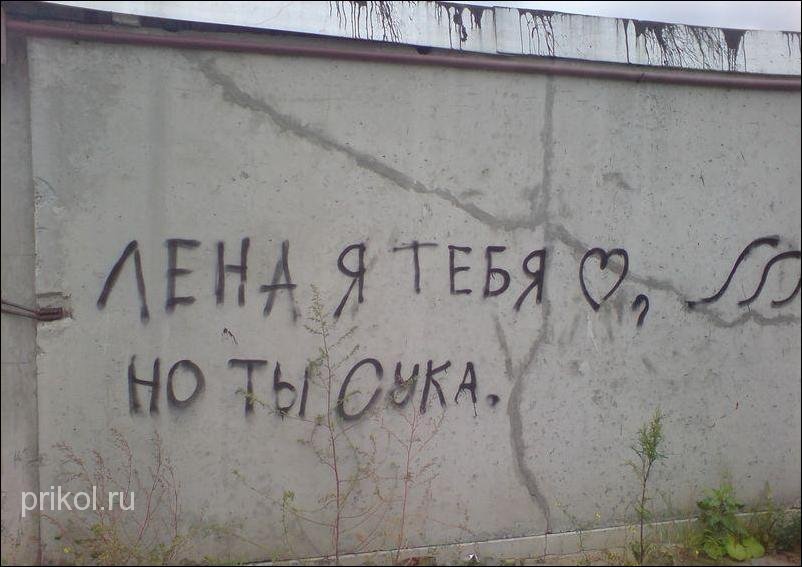 ЛЕНА Я ТЕБЯ ♡,
НО ТЫ СУКА.
prikol.ru